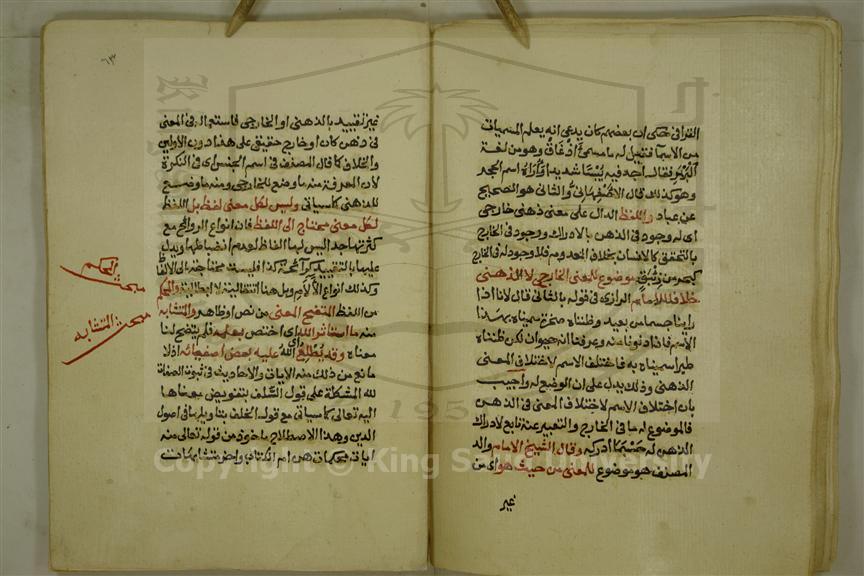 القرافي حتى ان بعضهم كان يدعى انه يعلم المسميات
من الاسما فقيل له ما مسمى اذغاغ وهو من لغة
البربر فقال اجد فيه يبسا شديدا واراه اسم الحجر
وهو كذلك قال الاصفهاني والثاني هو الصحيح
عن عباد واللفظ الدال على معنى ذهني خارجي
اى له وجود في الذهن بالادراك ووجود في الخارج
بالتحقق كالانسان بخلاف المعدوم فلا وجود له في الخارج
كبحر من زئبق موضوع للمعنى الخارجي لا الذهني
خلافا للامام الرازي في قوله بالثاني قال لانا اذا
راينا جسما من بعيد وظنناه صخرة سميناه بهذا
الاسم فاذا دنونا منه وعرفنا انه حيوان لكن ظنناه
طيرا سميناه به فاختلف الاسم لاختلاف المعنى
الذهني وذلك يدل على ان الوضع له واجيب
بان اختلاف الاسم لاختلاف المعنى في الذهن
فالموضوع له ما في الخارج والتعبير عنه تابع لادراك
الذهن له حسبما ادركه وقال الشيخ الامام والد
المصنف هو موضوع للمعنى من حيث هو اى من
غير
٦٣
غير تقييد بالذهني او الخارجي فاستعماله في المعنى
في ذهن كان او خارج حقيقي على هذا دون الاولين
والخلاف كما قال المصنف في اسم الجنس اى في النكرة
لان المعرفة منه ما وضع للخارجي ومنه ما وضع
للذهني كما سياتي وليس لكل معنى لفظ بل اللفظ
لكل معنى محتاج الى اللفظ فان انواع الروائح مع
كثرتها جدا ليس لها الفاظ لعدم انضباطها ويدل
عليها بالتقييد كرائحة كذا فليست محتاجة الى الالفاظ
وكذلك انواع الآلام وبل هنا انتقالية لا ابطالية والمحكم
من اللفظ المتضح المعنى من نص او ظاهر والمتشابه
منه ما استاثر الله اى اختص بعلمه فلم يتضح لنا
معناه وقد يطلع اى الله عليه بعض اصفيائه اذ لا
مانع من ذلك منه الايات والاحاديث في ثبوت الصفات
لله المشكلة على قول السلف بتفويض معناها
اليه تعالى كما سياتي مع قول الخلف بتاويلها في اصول
الدين وهذا الاصطلاح ماخوذ من قوله تعالى منه
ايات محكمات هن ام الكتاب واخر متشابهات
مبحث المحكم
مبحث المتشابه
1957
Copyright © King Saud University